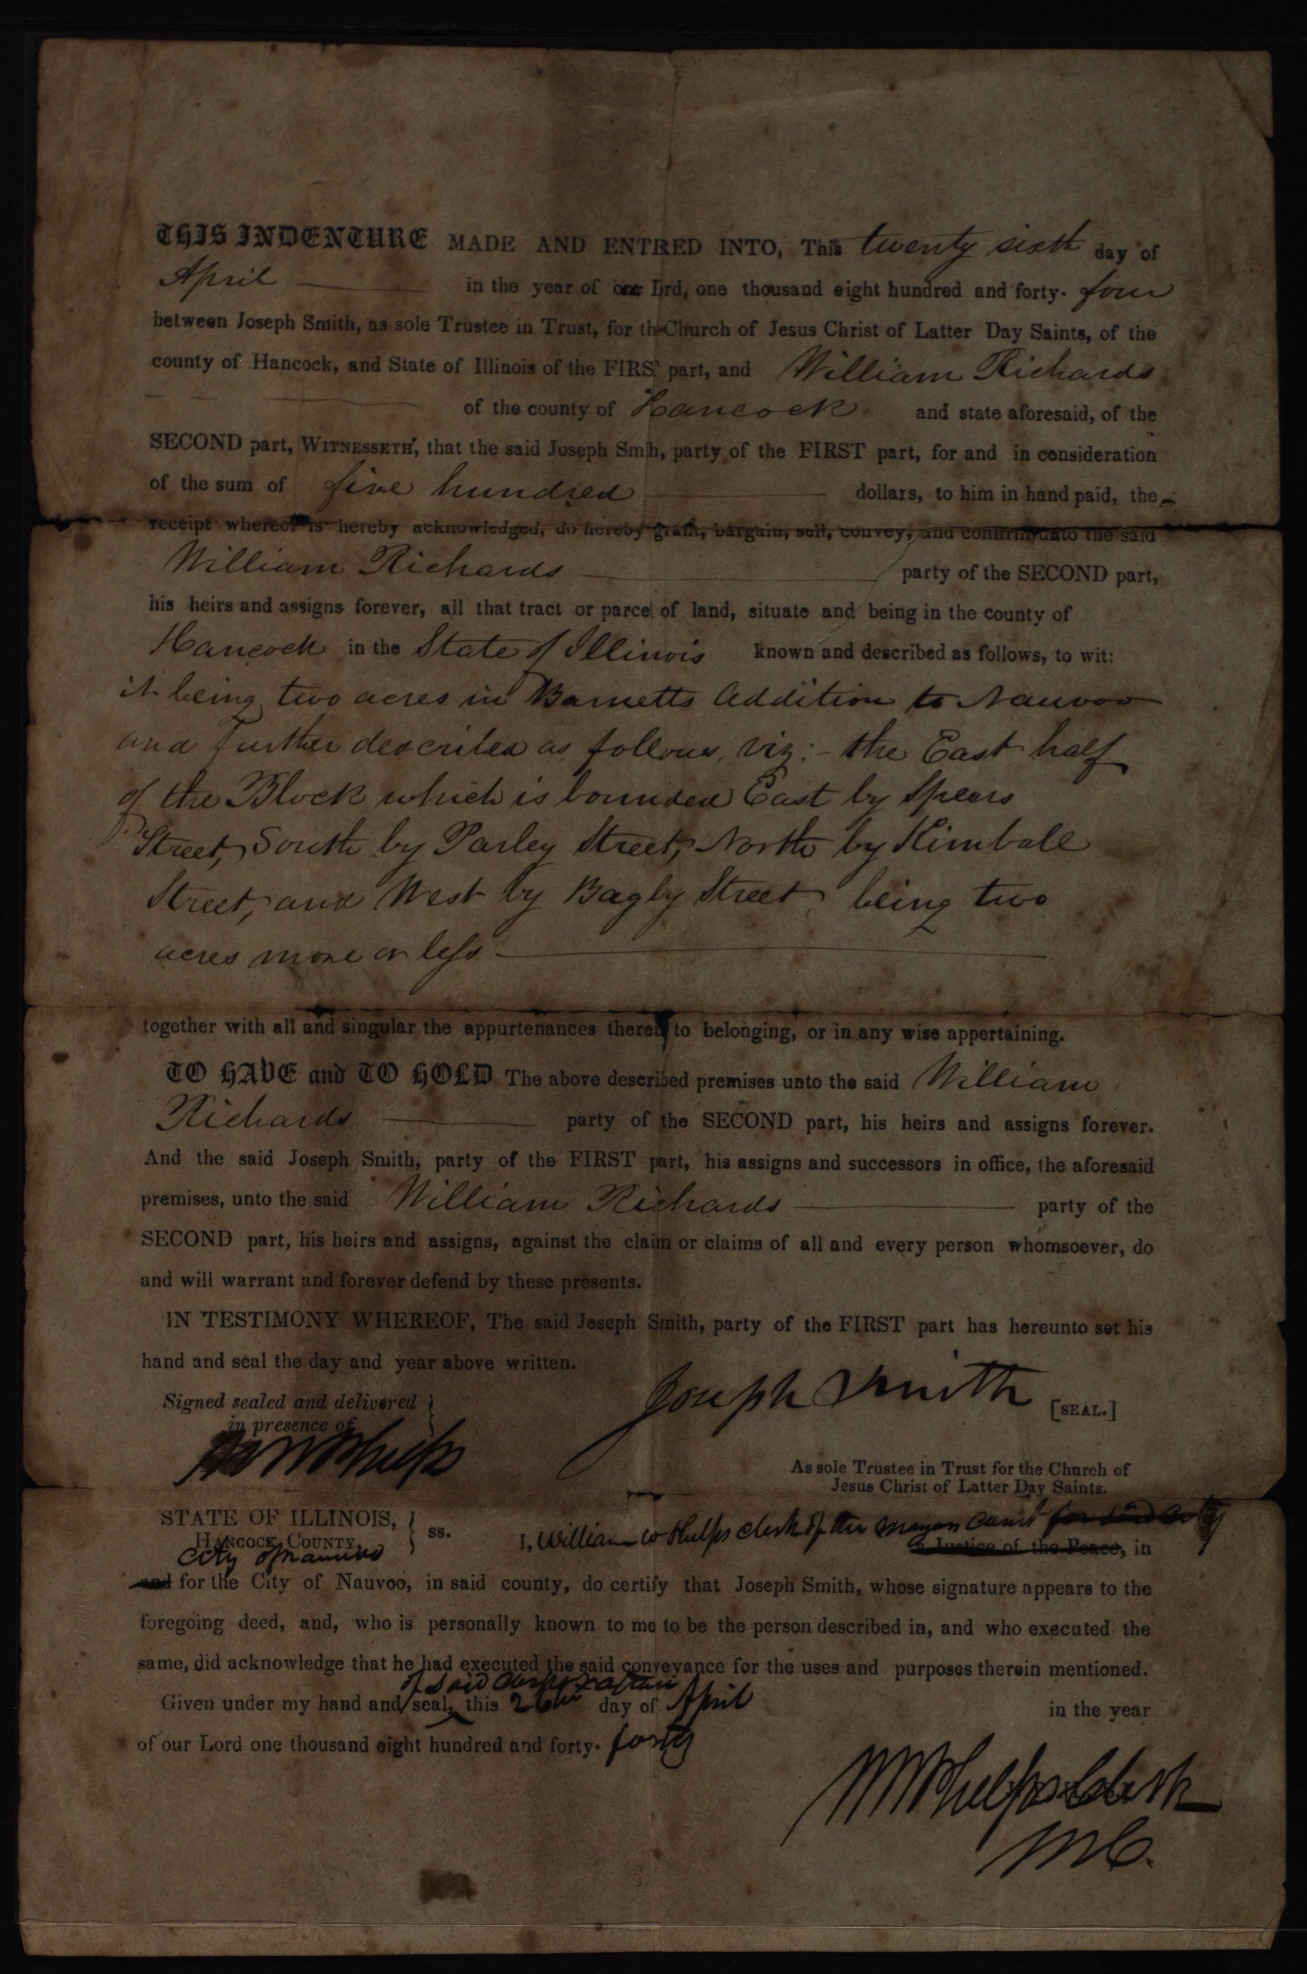 THIS INDENTURE MADE AND ENTRED INTO, This twenty sixth day of
April in the year of our Lrd, one thousand eight hundred and forty- four
between Joseph Smith, as sole Trustee in Trust, for th Church of Jesus Christ of Latter Day Saints, of the
county of Hancock, and State of Illinois of the FIRST part, and William Richards
of the county of Hancock and state aforesaid, of the
SECOND part, WITNESSETH, that the said Joseph Smth, party of the FIRST part, for and in consideration
of the sum of five hundred dollars, to him in hand paid, the
receipt whereof is hereby acknowledged, do hereby grant, bargain, sell, convey, and confirm unto the said
William Richards party of the SECOND part,
his heirs and assigns forever, all that tract or parcel of land, situate and being in the county of
Hancock in the State of Illinois known and described as follows, to wit:
it being two acres in Barnetts Addition to Nauvoo
and further described as follows, viz:- the East half
of the Block which is bounded East by Spears
Street, South by Parley Street, North by Kimball
Street, and West by Bagby Street being two
acres more or less
together with all and singular the appurtenances thereto belonging, or in any wise appertaining.
TO HAVE and TO HOLD The above described premises unto the said William
Richards party of the SECOND part, his heirs and assigns forever.
And the said Joseph Smith, party of the FIRST part, his assigns and successors in office, the aforesaid
premises, unto the said William Richards party of the
SECOND part, his heirs and assigns, against the claim or claims of all and every person whomsoever, do
and will warrant and forever defend by these presents.
IN TESTIMONY WHEREOF, The said Joseph Smith, party of the FIRST part has hereunto set his
hand and seal the day and year above written.
Signed sealed and delivered
in presence of
Joseph Smith [SEAL.]
W W Phelps
As sole Trustee in Trust for the Church of
Jesus Christ of Latter Day Saints.
STATE OF ILLINOIS,
HANCOCK COUNTY, ss.
City of Nauvoo
I, William W Phelps clerk of the mayors court for said city
a Justice of the Peace, in
and for the City of Nauvoo, in said county, do certify that Joseph Smith, whose signature appears to the
foregoing deed, and, who is personally known to me to be the person described in, and who executed the
same, did acknowledge that he had executed the said conveyance for the uses and purposes therein mentioned.
of said corporation
Given under my hand and seal, this 26th day of April in the year
of our Lord one thousand eight hundred and forty- forty
W W Phelps Clerk
M.C.